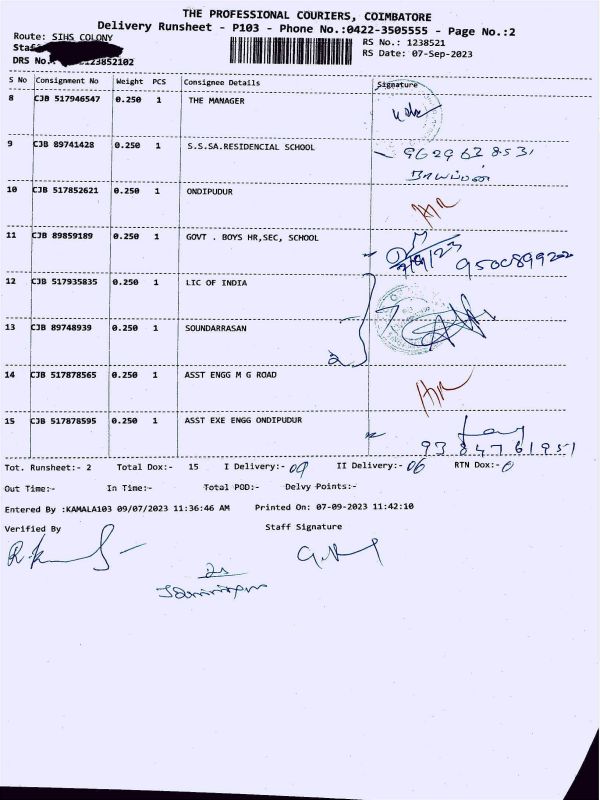 THE PROFESSIONAL COURIERS, COIMBATORE
Delivery Runsheet - P103 - Phone No.:0422-3505555 - Page No.:2
Route: SIHS COLONY
RS No.: 1238521
Staff
RS Date: 07-Sep-2023
DRS No. 123852102
S No Consignment No Weight PCS Consignee Details Signature
8 CJB 517946547 0.250 1 THE MANAGER
9 CJB 89741428 0.250 1 S.S.SA.RESIDENCIAL SCHOOL 9629628531
நாயப்பன்
10 CJB 517852621 0.250 1 ONDIPUDUR
11 CJB 89859189 0.250 1 GOVT . BOYS HR,SEC, SCHOOL
12 CJB 517935835 0.250 1 LIC OF INDIA
13 CJB 89748939 0.250 1 SOUNDARRASAN
2
14 CJB 517878565 0.250 1 ASST ENGG M G ROAD
15 CJB 517878595 0.250 1 ASST EXE ENGG ONDIPUDUR
9384761951
Tot. Runsheet:- 2 Total Dox:- 15 I Delivery:- 09 II Delivery:- 06 RTN Dox:- 0
Out Time:- In Time:- Total POD:- Delvy Points:-
Entered By :KAMALA103 09/07/2023 11:36:46 AM Printed On: 07-09-2023 11:42:10
Verified By Staff Signature